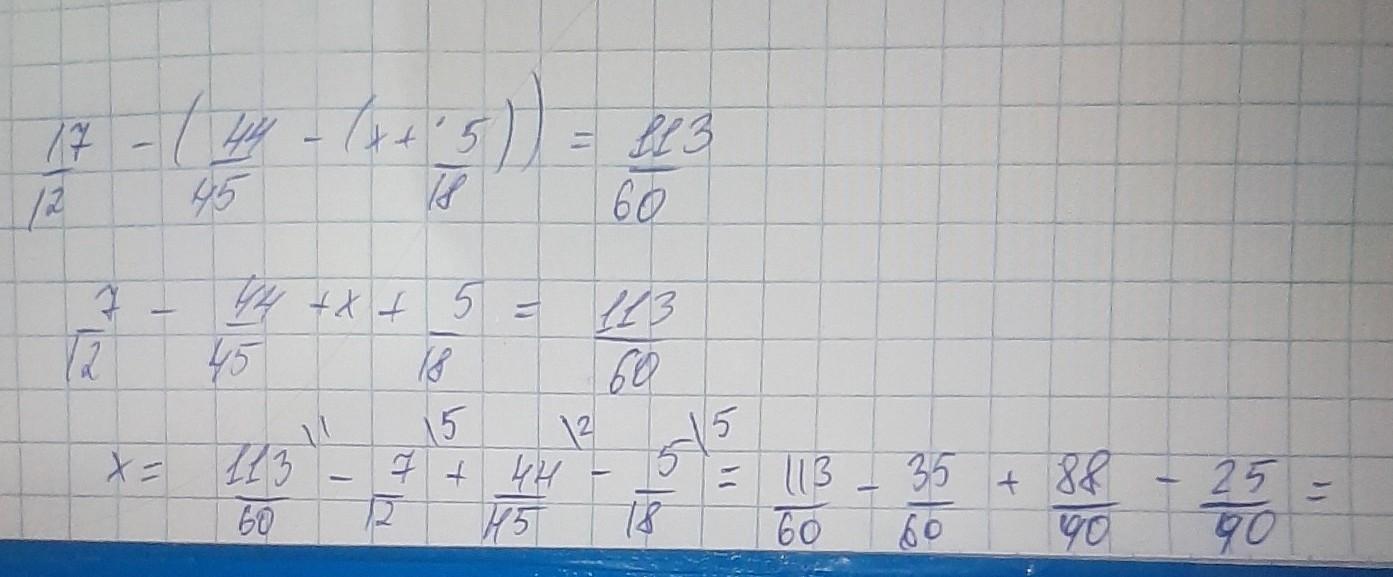 17/12 - (44/45 - (x + 5/18)) = 113/60
7/12 - 44/45 + x + 5/18 = 113/60
x = 113/60 \1 - 7/12 \5 + 44/45 \2 - 5/18 \5 = 113/60 - 35/60 + 88/90 - 25/90 =